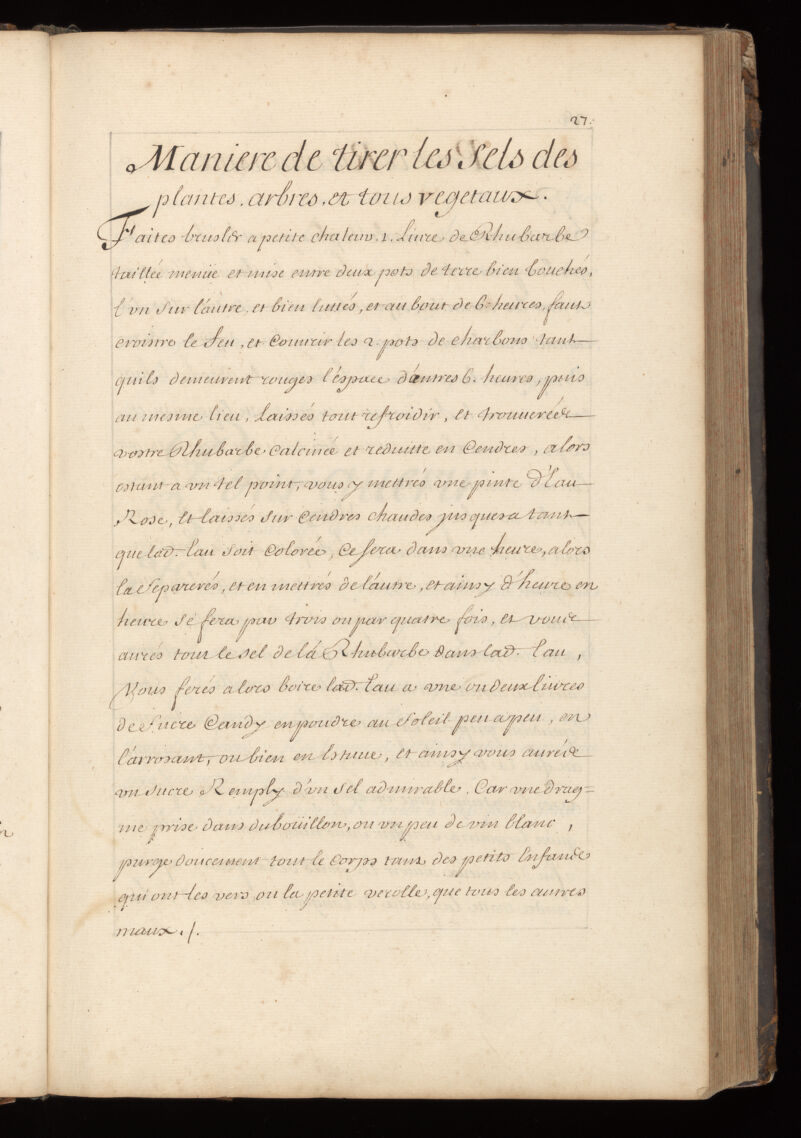 27.
Maniere de tirer les Sels des
plantes, arbres, et tous vegetaux.
Faites brusler a petite chaleur, 1. Livre de Rhubarbe
taillée menüe et mise entre deux pots de terre bien bouchés,
l'vn sur l'autre, et bien luttés, et au bout de 6. heures, faut
croistre le feu, et Couurir les 2. pots de charbons tant
quils demeurent rouges l'espace d'autres 6. heures, puis
au mesme lieu, laissés tout refroidir, et trouuerés
vostre Rhubarbe Calcinée et reduitte en Cendres, alors
estant a vn tel point, vous y mettrés vne pinte d'Eau
Rose, Et laissés sur Cendres chaudes jusques a tant
que lad. Eau soit Colorée, Ce sera dans vne heure, alors
la separerés, et en mettrés de l'autre, et ainsy d'heure en
heure se fera par trois ou par quatre fois, et vous
aurés tout le sel de la Rhubarbe dans lad. Eau,
Vous ferés alors boire lad. Eau a vne ou deux liures
de sucre Candy en poudre au soleil peu a peu, en
l'arrosant, ou bien en Estuue, Et ainsy vous aurés
vn sucre Remply d'vn sel admirable. Car vne drag=
me prise dans du boüillon, ou vn peu de vin blanc,
purge doucement tout le Corps tant des petits Enfans
qui ont les vers ou la petite verolle, que tous les autres
maux ./.